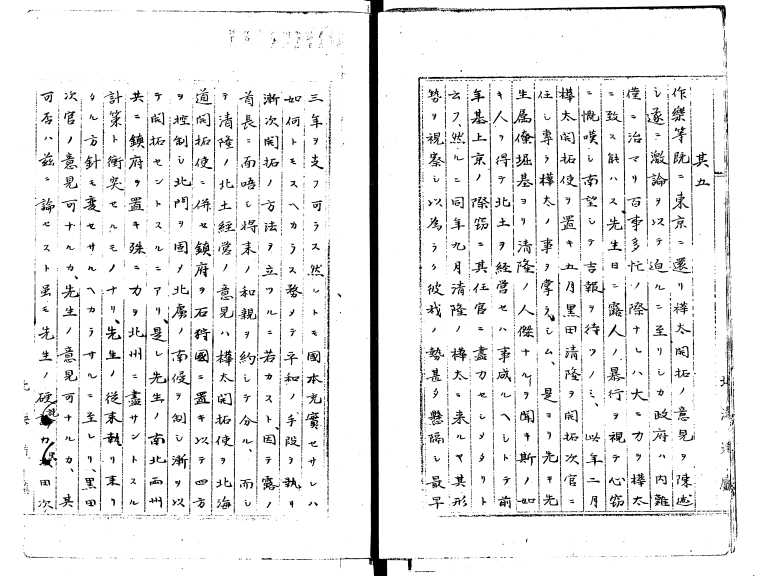 其五
作樂等既ニ東京ニ還リ樺太開拓ノ意見ヲ陳述
シ遂ニ激論ヲ以テ迫ルニ至リシカ政府ハ内難
僅ニ治マリ百事多忙ノ際ナレハ大ニ力ヲ樺太
ニ致ス能ハス先生日ニ露人ノ暴行ヲ視テ心窃
ニ慨嘆シ南望シテ吉報ヲ待ツノミ、此年二月
樺太開拓使ヲ置キ五月黒田清隆ヲ開拓次官ニ
任シ専ラ樺太ノ事ヲ掌ラシム、是ヨリ先キ先
生属僚堀基ヨリ清隆ノ人傑ナルヲ聞キ斯ノ如
キ人ヲ得テ北土ヲ経営セハ事成ルヘシトテ前
年基上京ノ際窃ニ其任官ニ盡力セシメタリト
云フ、然ルニ同年九月清隆ノ樺太ニ来ルヤ其形
勢ヲ視察シ以為ラク彼我ノ勢甚タ懸隔シ最早
三年ヲ支フ可ラス然レトモ國本充實セサレハ
如何トモスヘカラス務メテ平和ノ手段ヲ執リ
漸次開拓ノ方法ヲ立ツルニ若カスト、因テ露ノ
酋長ニ面晤シ将来ノ和親ヲ約シテ分ル、而シ
テ清隆ノ北土経営ノ意見ハ樺太開拓使ヲ北海
道開拓使ニ併セ鎮府ヲ石狩國ニ置キ以テ四方
ヲ控制シ北門ヲ固メ北虜ノ南侵ヲ制シ漸ヲ以
テ開拓セントスルニアリ、是レ先生ノ南北両州
共ニ鎮府ヲ置キ殊ニ力ヲ北州ニ盡サントスル
計策ト衝突セルモノナリ、先生ノ従来執リ来リ
タル方針モ変セサルヘカラサルニ至レリ、黒田
次官ノ意見可ナルカ、先生ノ意見可ナルカ、其
可否ハ茲ニ論セスト雖モ先生ノ硬